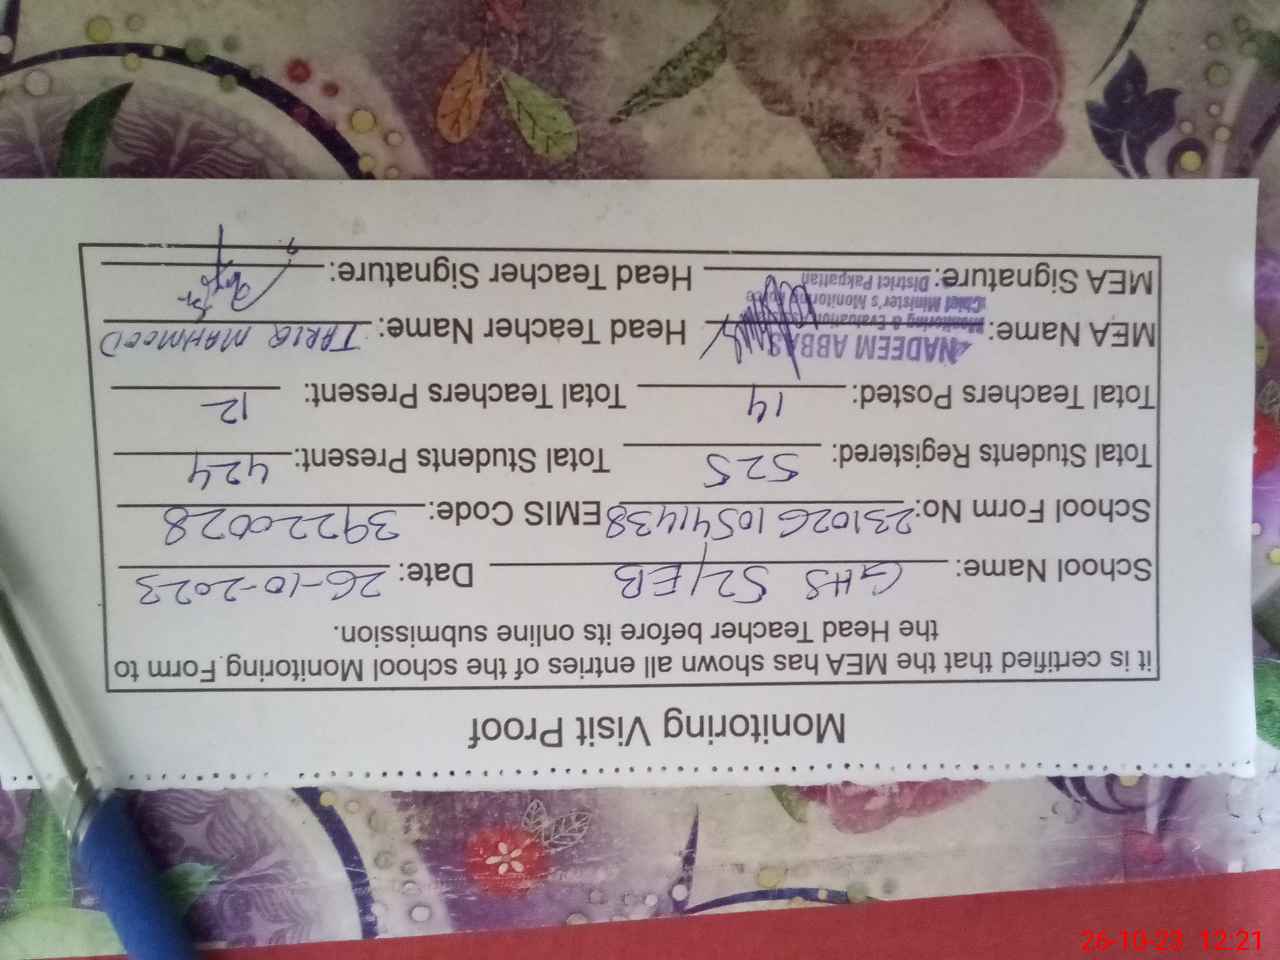 Monitoring Visit Proof
it is certified that the MEA has shown all entries of the school Monitoring Form to
the Head Teacher before its online submission.
School Name: GHS 52/EB Date: 26-10-2023
School Form No: 23102610541438 EMIS Code: 39220028
Total Students Registered: 525 Total Students Present: 424
Total Teachers Posted: 14 Total Teachers Present: 12
MEA Name: NADEEM ABBAS Head Teacher Name: TARIQ MAHMOOD
Monitoring & Evaluation
Chief Minister's Monitoring
District Pakpattan
MEA Signature: Head Teacher Signature:
26-10-23 12:21